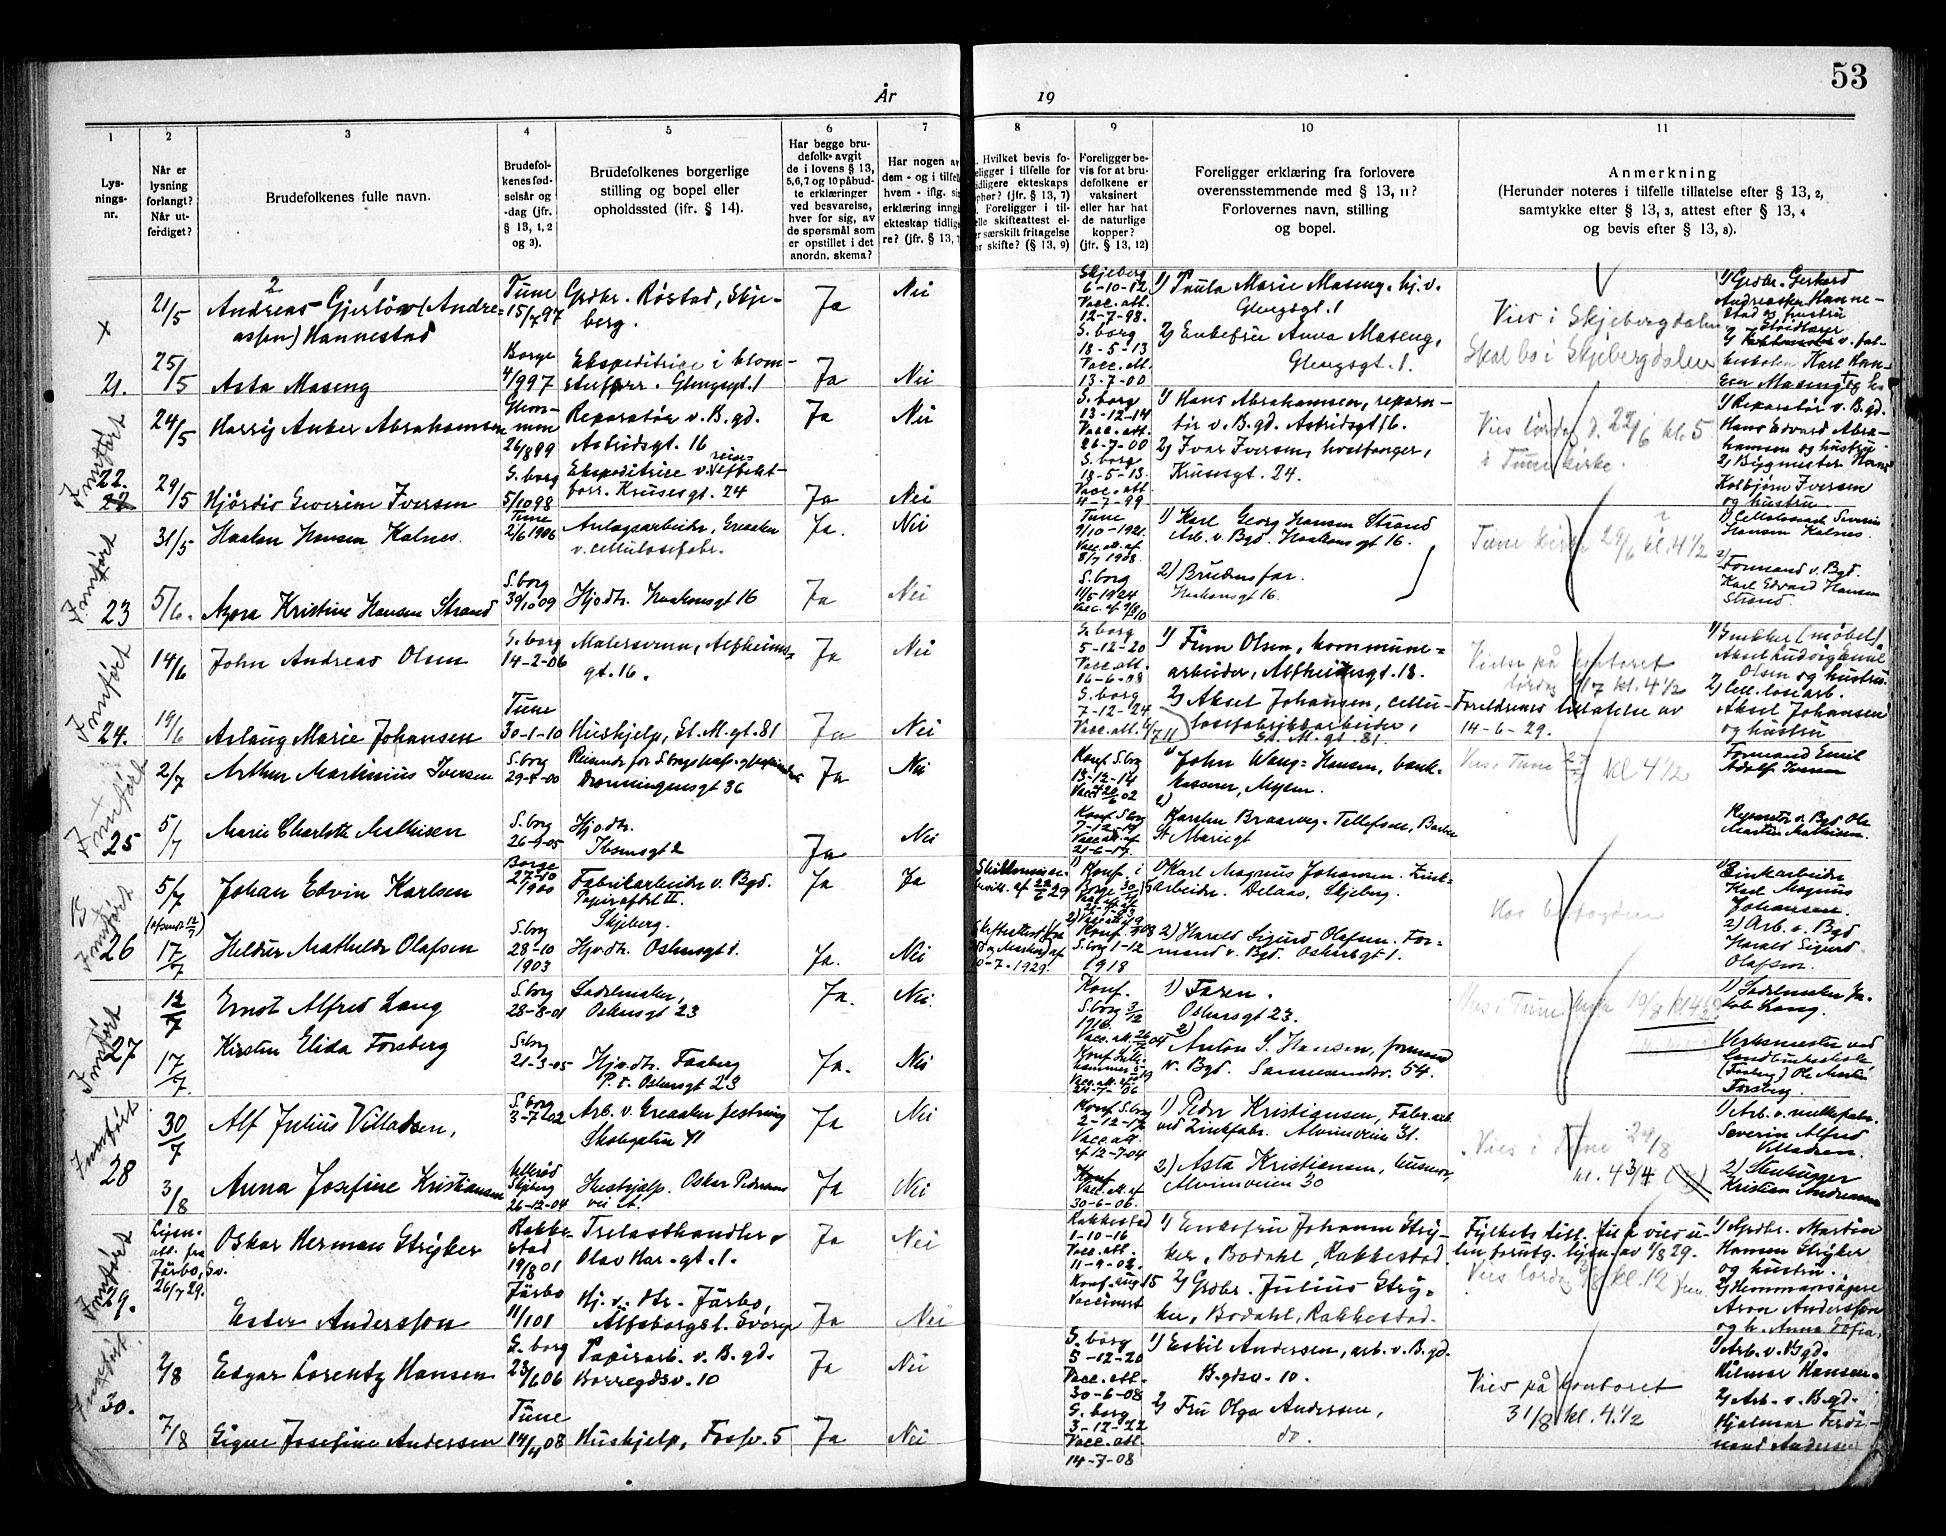 53
År 19
1 2 3 4 5 6 7 8 9 10 11
Lys-
nings-
nr.
Når er
lysning
forlangt?
Når ut-
ferdiget?
Brudefolkenes fulle navn.
Brudefol-
kenes fød-
selsår og
-dag (jfr.
§ 13, 1, 2
og 3).
Brudefolkenes borgerlige
stilling og bopel eller
opholdssted (jfr. § 14).
Har begge bru-
defolk avgit
de i lovens § 13,
5, 6, 7 og 10 påbud-
te erklæringer
ved besvarelse,
hver for sig, av
de spørsmål som
er opstillet i det
anordn. skema?
Har nogen av
dem - og i tilfelle
hvem - iflg. sin
erklæring inngått
ekteskap tidlige-
re? (jfr. § 13,
Hvilket bevis fo-
religger i tilfelle for
tidligere ekteskaps
ophør? (jfr. § 13, 7)
Foreligger i til-
felle skifteattest el-
ler særskilt fritagelse
for skifte? (§ 13, 9)
Foreligger be-
vis for at bru-
defolkene er
vaksinert
eller har hat
de naturlige
kopper?
(jfr. § 13, 12)
Foreligger erklæring fra forlovere
overensstemmende med § 13, 11?
Forlovernes navn, stilling
og bopel.
Anmerkning
(Herunder noteres i tilfelle tillatelse efter § 13, 2,
samtykke efter § 13, 3, attest efter § 13, 4
og bevis efter § 13, 8).
x 21/5 Andreas Gjerløw (Andre-
assen) Hannestad
Tune
15/7 97
Grdbr. Røstad, Skje-
berg.
Ja Nei
Skjeberg
6-10-12
Vacc. att.
12-7-98.
1) Paula Marie Maseng, hj. v.
Glengsgt. 1
Vies i Skjebergdalen
1) Grdbr. Gerhard
Andreassen Hanne-
stad og hustru
21. 25/5 Asta Maseng
Borge
4/9 97
Ekspeditrice i blom-
sterforr. Glengsgt. 1
Ja Nei
S. borg
18-5-13
Vacc. att.
13-7-00
2) Enkefru Anna Maseng,
Glengsgt. 1.
Skal bo i Skjebergdalen
Karl Han-
sen Maseng
Innført
22.
24/5 Harry Anker Abrahamsen
Glem-
men
26/8 99
Reparatør v. B.gd.
Astridsgt. 16
Ja Nei
S. borg
13-12-14
Vacc. att.
26-7-00
1) Hans Abrahamsen, repara-
tør v. B.gd. Astridsgt. 16.
Vies lørdag d. 22/6 kl. 5
i Tune kirke.
1) Reparatør v. B.gd.
Hans Edvard Abra-
hamsen og hustru
29/5 Hjørdis Severine Iversen
S. borg
5/10 98
Ekspeditrice v. reise-effekt-
forr. Krusesgt. 24
Ja Nei
S. borg
18-5-13.
Vacc. att.
4-7-99
2) Ivar Iversen, hvalfanger,
Krusesgt. 24.
2) Bygmester Hans
Kolbjørn Iversen
og hustru
Innført
23
31/5 Haakon Hansen Kalnes.
Tune
2/6 1906
Anlægsarbeider, Greaaker
v. cellulosefabr.
Ja. Nei
Tune
9/10-1921.
Vacc. att. af
8/7 1908.
1) Karl Georg Hansen Strand
Arb. v. Bgd. Haakonsgt 16.
Tune kirke 29/6 kl. 4 1/2
Hansen Kalnes.
5/6. Agora Kristine Hansen Strand
S. borg
30/10 09
Hjv.dtr. Haakonsgt 16
Ja Nei
S. borg
11/5 1924
2) Brudens far.
Haakonsgt 16.
2) Formand v. Bgd.
Karl Edvard Hansen
Strand.
Innført
24.
14/6 John Andreas Olsen
S. borg
14-2-06
Malersvenn, Alfheims-
gt. 16.
Ja Nei
S. borg
5-12-20
Vacc. att.
16-6-08
1) Finn Olsen, kommune-
arbeider, Alfheimsgt. 18.
Vies på kontoret
lørdag 6/7 kl. 4 1/2
1) Snekker (møbel)
Aksel Ludvig Emil
Olsen og hustru
19/6 Aslaug Marie Johansen
Tune
30-1-10
Hushjelp, St. M. gt. 81
Ja Nei
S. borg
7-12-24
Vacc. att.
2) Aksel Johansen, cellu-
losefabrikkarbeider,
St. M. gt. 81.
Foreldrenes tillatelse av
14-6-29.
2) Cell.losearb.
Aksel Johansen
og hustru
Innført
25
2/7 Arthur Martinius Iversen
S. borg
Dronningensgt 36
Ja Nei
Konf. S. borg
13-12-14
1) John Wang-Hansen, bank-
kasserer, Mysen.
Vies i Tune 27/7 kl 4 1/2
Formand Emil
Adolf Iversen
5/7 Marie Charlotte Mathisen
S. borg
26-9-05
Hjv.dtr.
Ibsensgt 2
Ja Nei
Konf. S. borg
Vacc. att. af
2)
Karsten Braarvig-Tellefsen, Banken
St Mariegt
Reparatør v. Bgd Ole
Martin Mathisen.
Innført
26
5/7 Johan Edvin Karlsen
Borge
27-10
1900
Fabrikarbeider v. Bgd.
Papirafdel II.
Skjeberg.
Ja Ja
1) Konf. i
Borge
1) Karl Magnus Johansen. Zink-
arbeider. Delaas, Skjeberg.
Hos byfogden
1) Zinkarbeider
Karl Magnus
Johansen.
17/7 Heldur Mathilde Olafsen
S. borg
28-10
1903
Hjv.dtr. Oskarsgt 1.
Ja. Nei
10-7-1929.
2) Konf.
S. borg 1-12
1918
2) Harald Sigurd Olafsen. For-
mand v. Bgd. Oskarsgt 1.
2) Arb. v. Bgd
Harald Sigurd
Olafsen.
Innført
27
12/7 Ernst Alfred Lang
S. borg
28-8-01
Sadelmaker,
Oskarsgt 23
Ja. Nei.
Konf.
S. borg 3/12
1916.
1) Faren.
Oskarsgt 23.
Vies i Tune kirke 10/8 kl 4
1) Sadelmaker Ja-
kob Lang.
17/7 Kirsten Elida Forsberg
S. borg
21-3-05
Hjv.dtr. Faaberg
P. t. Oskarsgt 23
Ja. Nei
2)
Anton S. Hansen, formand
v. Bgd. Sannesundsv. 54.
Verksmester ved
(Faaberg) Ole Martin
Forsberg.
Innført
28
30/7 Alf Julius Villadsen,
S. borg
3-7-02
Arb. v. Greaaker festning
Skolegaten 41
Ja Nei
Konf. S. borg
2-12-17
Vacc. att.
af 12-7-04
1) Peder Kristiansen, Fabr.arb.
ved Zinkfabr. Alvimveien 31.
Vies i Tune 24/8
kl. 4 3/4
1) Arb. v.
Severin Alfred
Villadsen.
3/8 Anna Josefine Kristiansen
Skjeberg
26-12-04
Hushjelp. Oskar Pedersens
vei
Ja Nei
Konf
Vacc. att. af
30-6-06.
2) Asta Kristiansen, husmor,
Alvimveien 30
2) Stenhugger
Kristian Andreassen
Innført
29.
Lysn.-
att. fra
Färbo, Sv.
26/7 29.
Oskar Herman Stryker
Rakke-
stad
19/8 01
Trelasthandler
Olav Har.-gt. 1.
Ja Nei
Rakkestad
1-10-16
Vacc. att.
11-9-02.
1) Enkefru Johanne Stry-
ker, Bodahl, Rakkestad.
Fylkets till. til å vies u-
ten forutg. lysn. av 1/8 29.
Vies lørdag 3/8 kl. 12
1) Grdbr. Martin
Hansen Stryker
og hustru.
Ester Andersson
Färbo
1/1 01
Hj. v. dtr. Färbo,
Älfsborgs l. Sverge
Ja Nei
Konf. aug 15
Vaccinert
2) Grdbr. Julius Stry-
ker, Bodahl, Rakkestad.
2) Hemmansägare
Aron Andersson
og h. Anna Sofia.
Innført.
30.
2/8 Edgar Lorentz Hansen
S. borg
23/6 06
Papirarb. v. B.gd.
Borregdsv. 10
Ja Nei
S. borg
5-12-20
Vacc. att.
30-6-08
1) Eskil Andersen, arb. v. B.gd.
B.gdsv. 10.
Vies på kontoret
31/8 kl. 4.1/2
1) Arb. v. Bgd.
Hilmar Hansen.
7/8 Signe Josefine Andersen
Tune
14/4 08
Hushjelp, Fossv. 5
Ja Nei
S. borg
3-12-22
Vacc. att.
14-7-08
2) Fru Olga Andersen,
do.
2) Arb. v. B.gd.
Hjalmar Ferdi-
nand Andersen